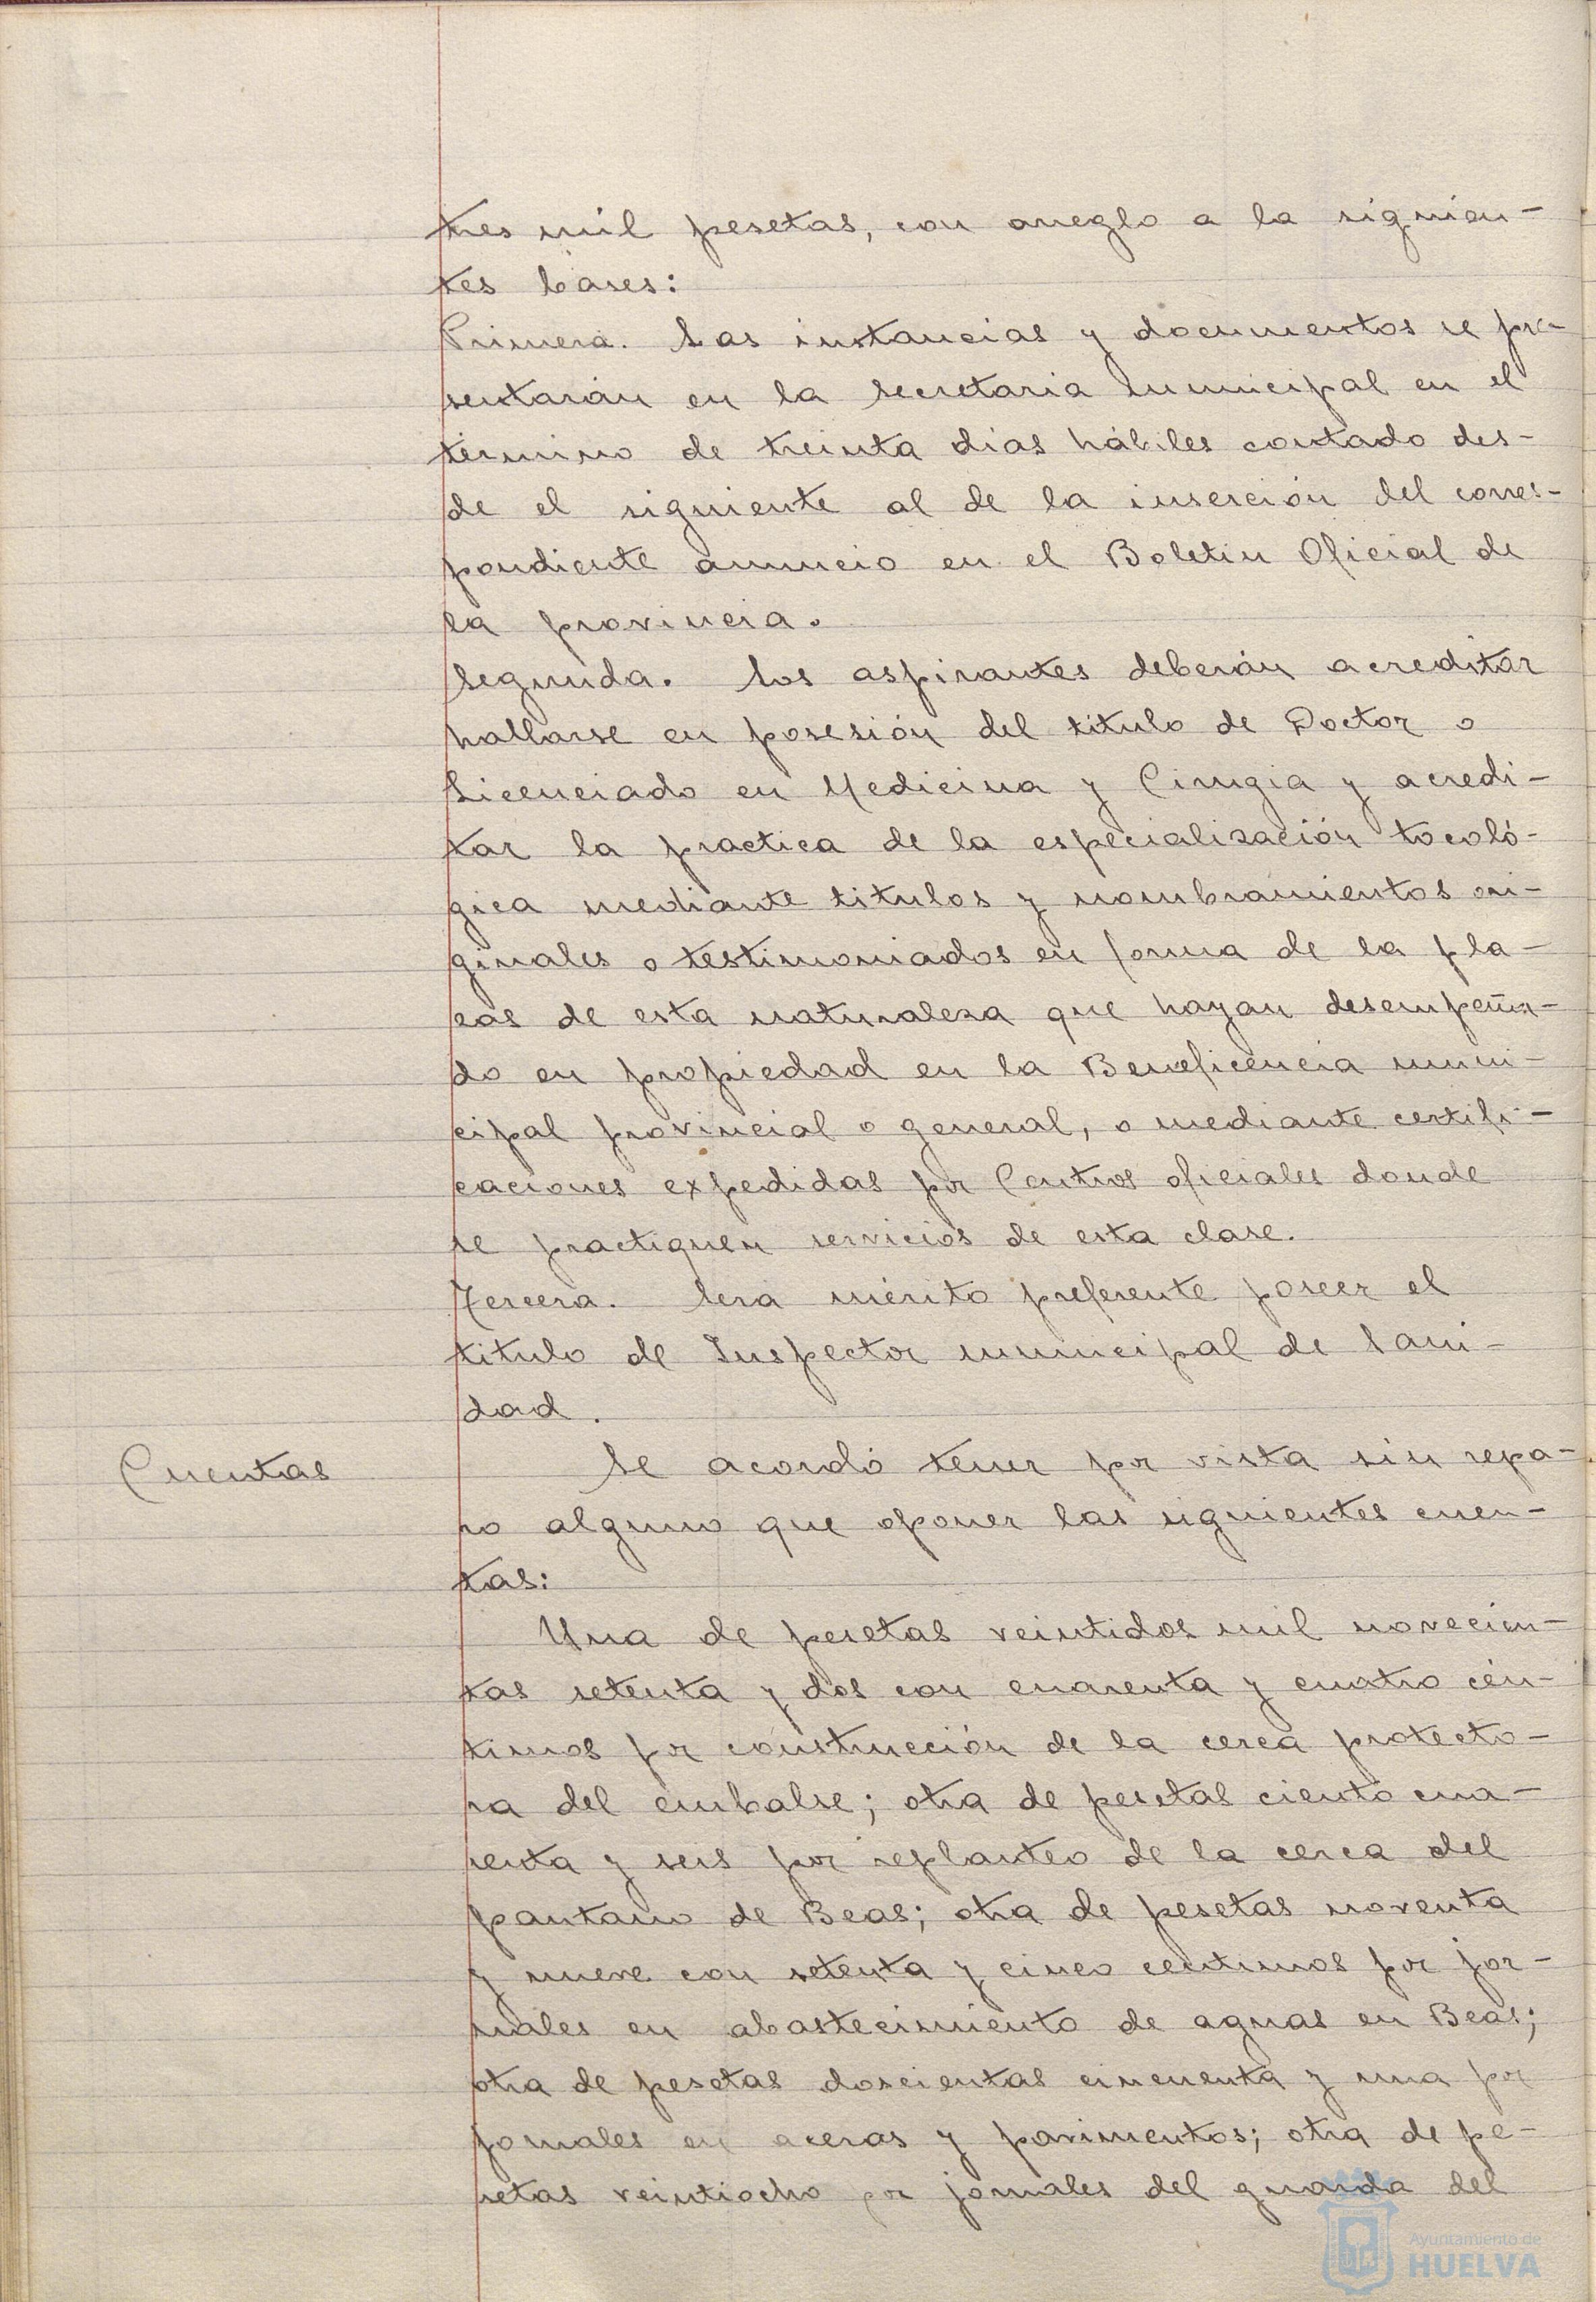 tres mil pesetas, con arreglo a la siguien-
tes bases:
Primera. Las instancias y documentos se pre-
sentarán en la Secretaria Municipal en el
término de treinta días hábiles contado des-
de el siguiente al de la inserción del corres-
pondiente anuncio en el Boletin Oficial de
la provincia.
Segunda. Los aspirantes deberán acreditar
hallarse en posesión del titulo de Doctor o
Licenciado en Medicina y Cirugia y acredi-
tar la practica de la especialización tocoló-
gica mediante titulos y nombramientos ori-
ginales o testimoniados en forma de la pla-
zas de esta naturaleza que hayan desempeña-
do en propiedad en la Beneficencia muni-
cipal provincial o general, o mediante certifi-
caciones expedidas por Centros oficiales donde
se practiquen servicios de esta clase.
Tercera. Sera mérito preferente poseer el
titulo de Inspector municipal de Sani-
dad.
Cuentas
Se acordó tener por vista sin repa-
ro alguno que oponer las siguientes cuen-
tas:
Una de pesetas veintidos mil novecien-
tas setenta y dos con cuarenta y cuatro cén-
timos por construcción de la cerca protecto-
ra del embalse; otra de pesetas ciento cua-
renta y seis por replanteo de la cerca del
pantano de Beas; otra de pesetas noventa
y nueve con setenta y cinco centimos por jor-
nales en abastecimiento de aguas en Beas;
otra de pesetas doscientas cincuenta y una por
jornales en aceras y pavimentos; otra de pe-
setas veintiocho por jornales del guarda del
Ayuntamiento de
HUELVA